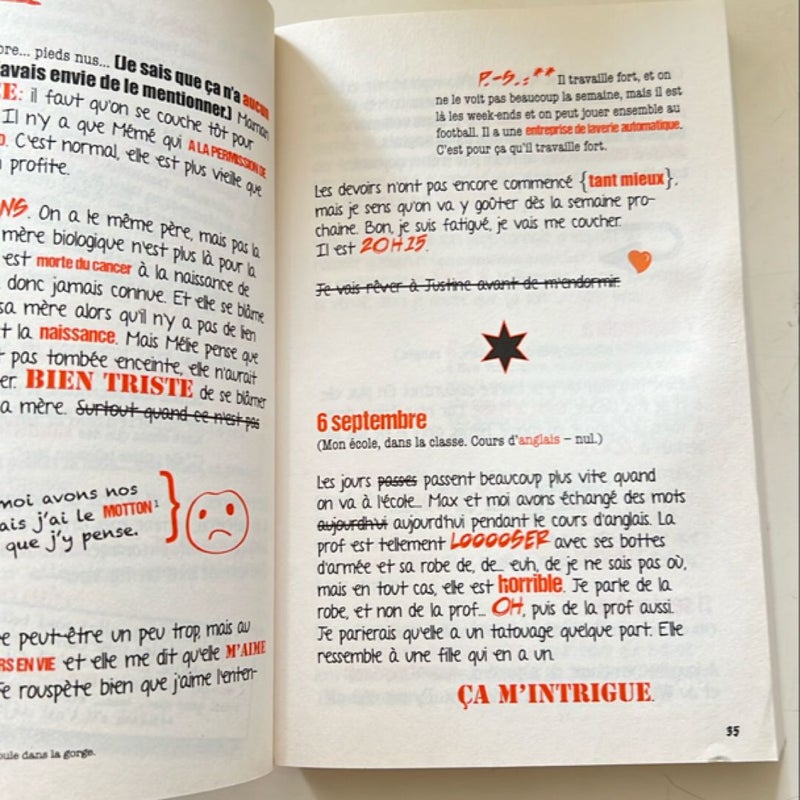 pieds nus... (Je sais que ça n'a aucun
avais envie de le mentionner.) Maman
: il faut qu'on se couche tôt pour
Il n'y a que Mémé qui A LA PERMISSION DE
. C'est normal, elle est plus vieille que
profite.
. On a le même père, mais pas la
mère biologique n'est plus là pour la
est morte du cancer à la naissance de
donc jamais connue. Et elle se blâme
sa mère alors qu'il n'y a pas de lien
la naissance. Mais Mélie pense que
pas tombée enceinte, elle n'aurait
BIEN TRISTE de se blâmer
a mère. Surtout quand ce n'est pas
moi avons nos
ais j'ai le MOTTON1 }
que j'y pense.
peut-être un peu trop, mais au
EN VIE et elle me dit qu'elle M'AIME
rouspète bien que j'aime l'enten-
oule dans la gorge.
P.-S. : ** Il travaille fort, et on
ne le voit pas beaucoup la semaine, mais il est
là les week-ends et on peut jouer ensemble au
football. Il a une entreprise de laverie automatique.
C'est pour ça qu'il travaille fort.
Les devoirs n'ont pas encore commencé {tant mieux},
mais je sens qu'on va y goûter dès la semaine pro-
chaine. Bon, je suis fatigué, je vais me coucher.
Il est 20H15.
Je vais rêver à Justine avant de m'endormir.
6 septembre
(Mon école, dans la classe. Cours d'anglais – nul.)
Les jours passes passent beaucoup plus vite quand
on va à l'école... Max et moi avons échangé des mots
aujourdh'ui aujourd'hui pendant le cours d'anglais. La
prof est tellement LOOOOSER avec ses bottes
d'armée et sa robe de, de... euh, de je ne sais pas où,
mais en tout cas, elle est horrible. Je parle de la
robe, et non de la prof... OH, puis de la prof aussi.
Je parierais qu'elle a un tatouage quelque part. Elle
ressemble à une fille qui en a un.
ÇA M'INTRIGUE.
35